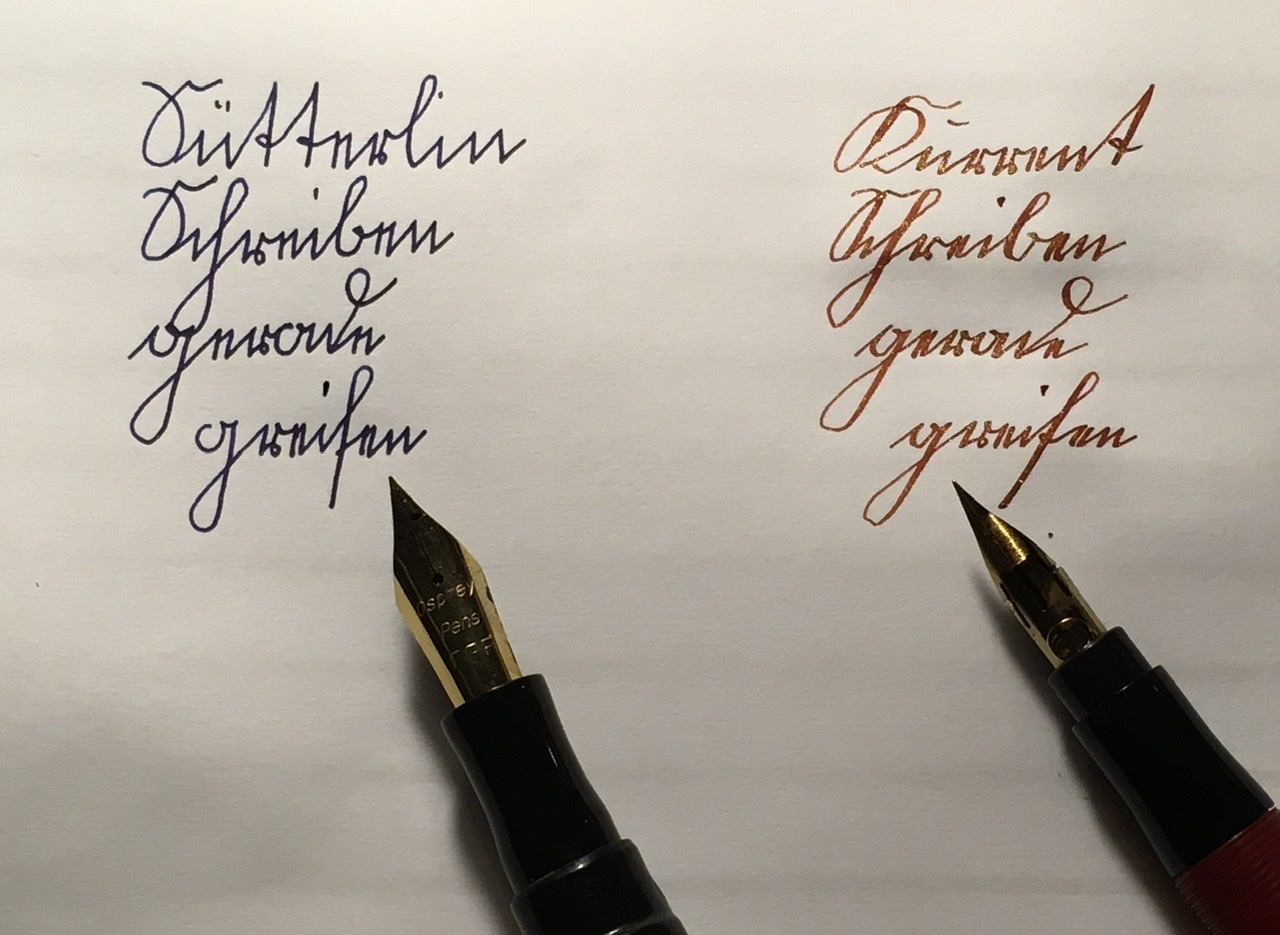 Sütterlin
Schreiben
gerade
greifen
Kurrent
Schreiben
gerade
greifen
Osprey
Pens